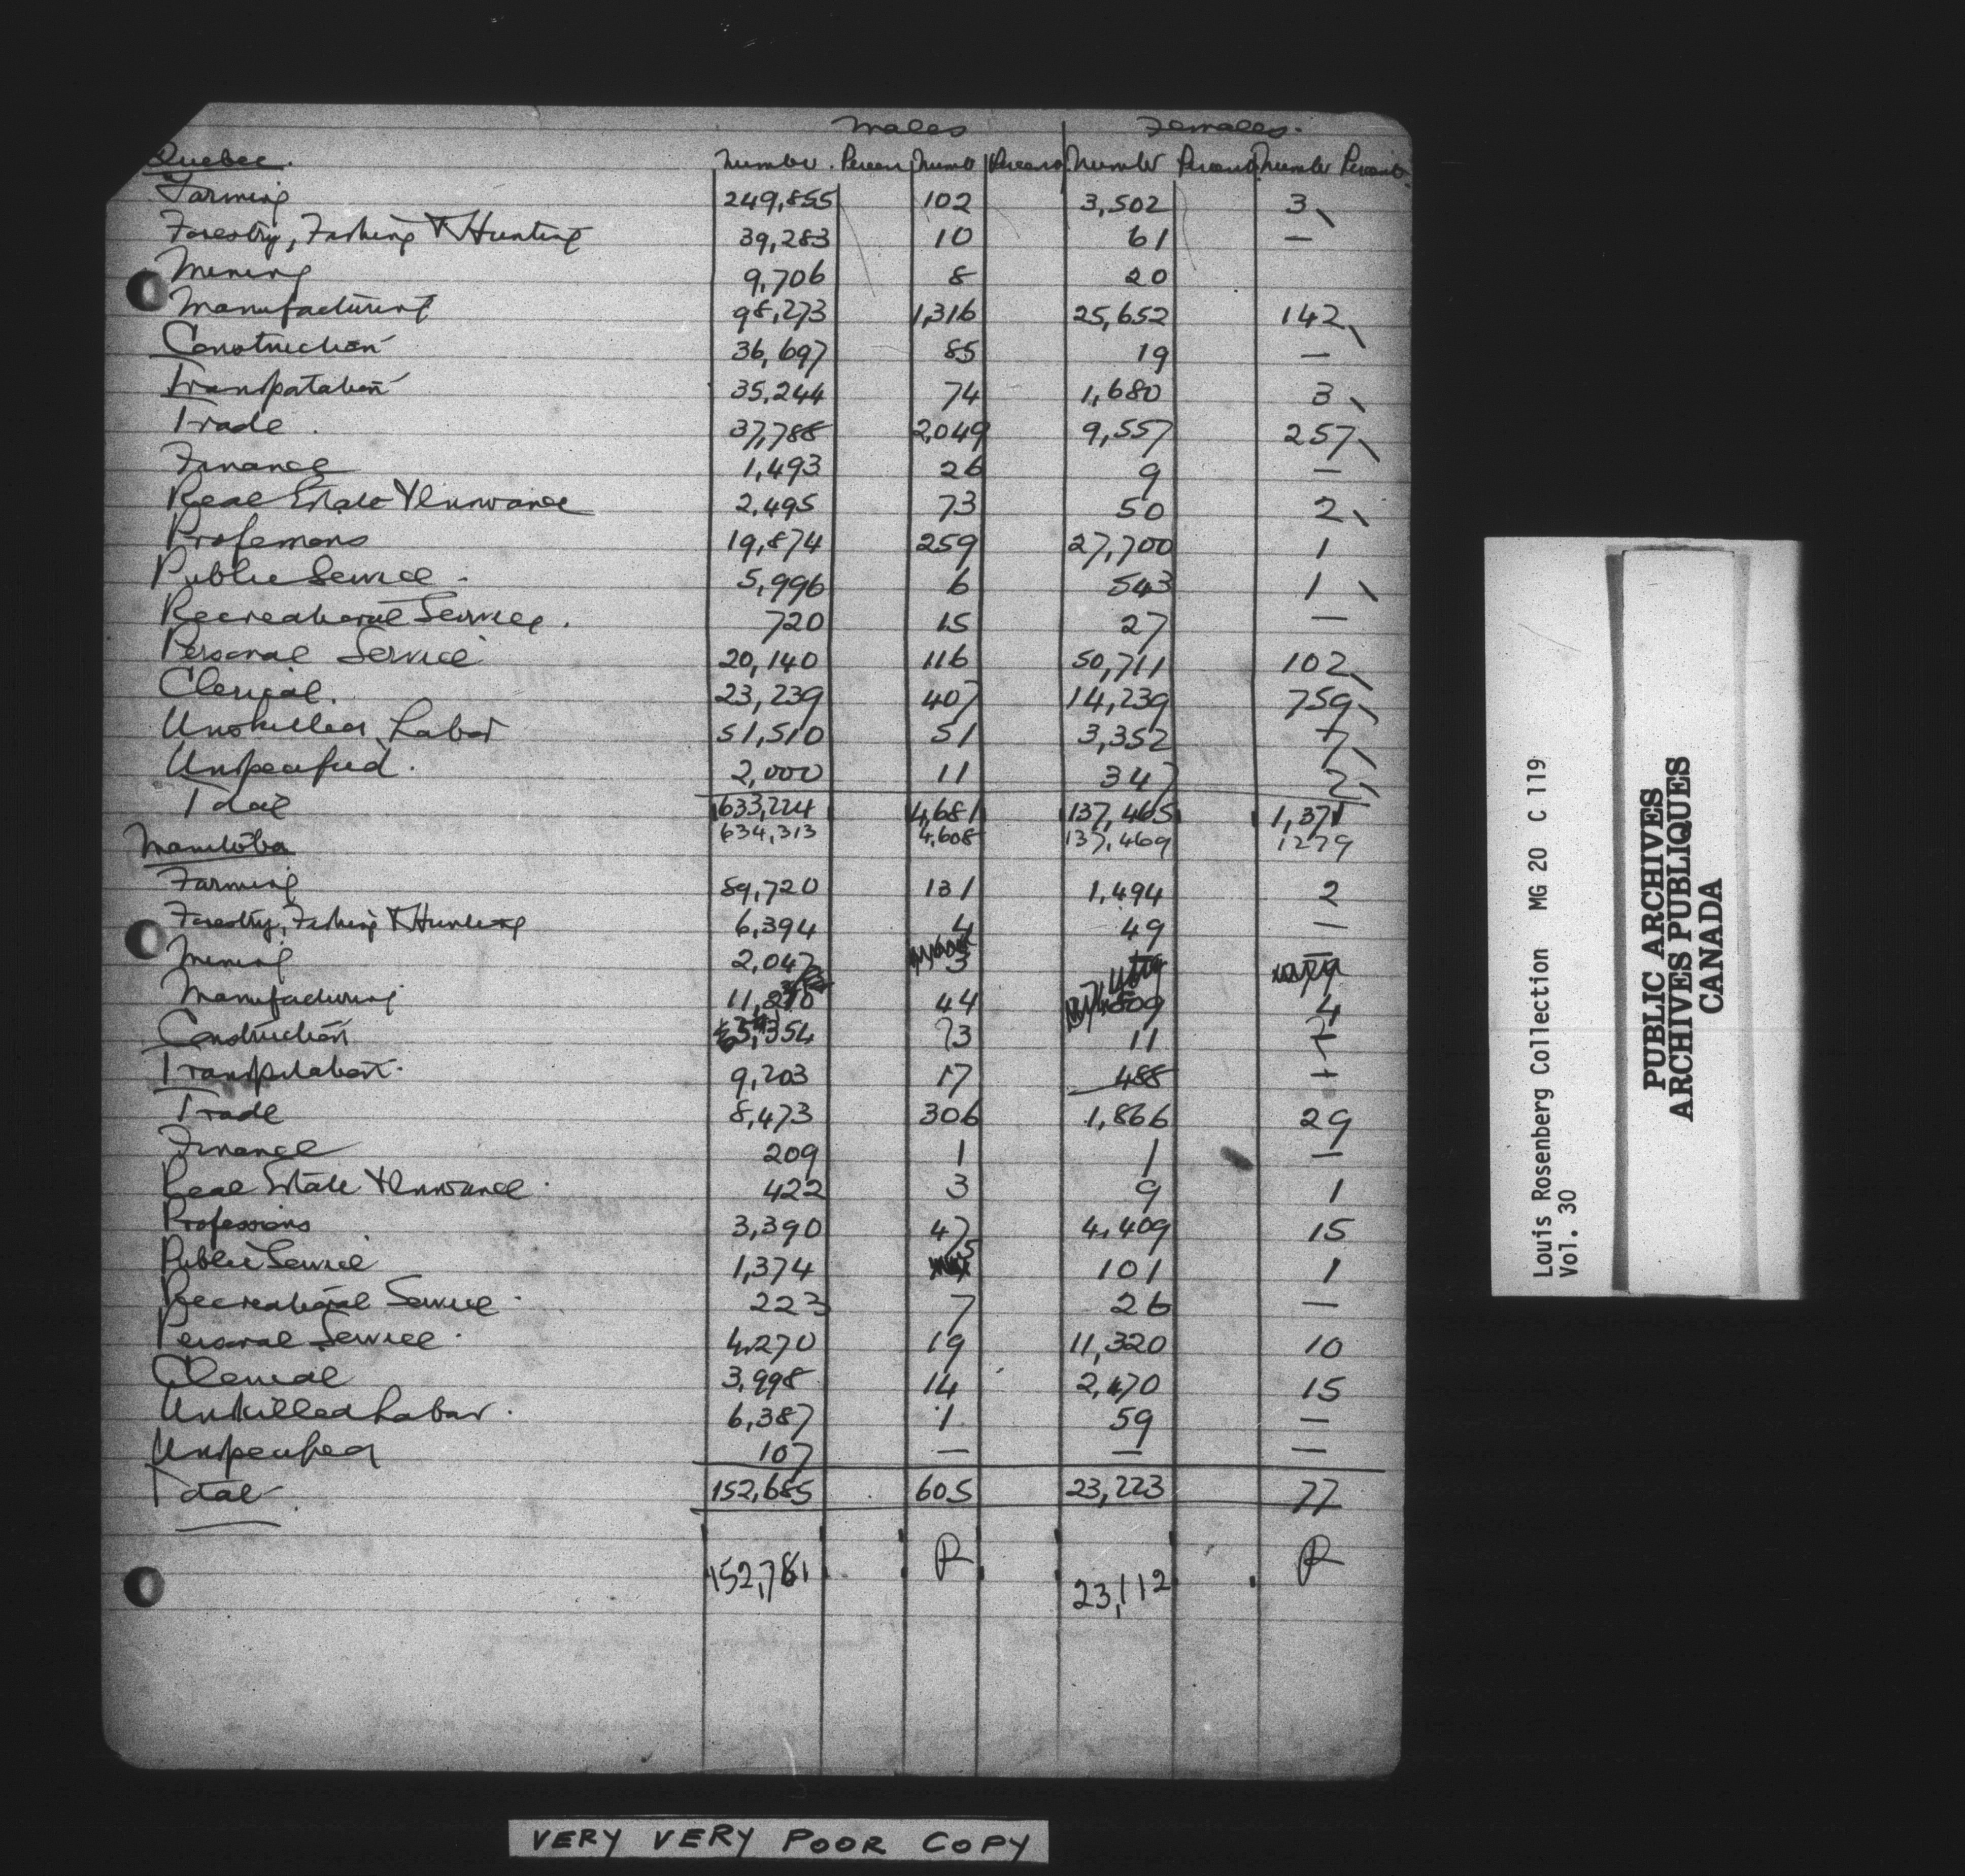 Males Females.
Quebec. Number. Percent Number Percent Number Percent Number Percent
Farming 249,855 102 3,502 3
Forestry, Fishing & Hunting 39,283 10 61 —
Mining 9,706 8 20
Manufacturing 98,273 1,316 25,652 142
Construction 36,697 85 19 —
Transportation 35,244 74 1,680 3
Trade. 37,788 2,049 9,557 257
Finance 1,493 26 9 —
Real Estate & Insurance 2,495 73 50 2
Professions 19,874 259 27,700 1
Public Service. 5,996 6 543 1
Recreational Service. 720 15 27 —
Personal Service 20,140 116 50,711 102
Clerical. 23,239 407 14,239 759
Unskilled Labor 51,510 51 3,352 7
Unspecified. 2,000 11 347 2
Total 633,224 4,681 137,465 1,371
634,313 4,608 137,469 1279
Manitoba
Farming 59,720 131 1,494 2
Forestry, Fishing & Hunting 6,394 4 49 —
Mining 2,047 3 —
Manufacturing 44 4
Construction 73 11
Transportation. 9,203 17 488 —
Trade 8,473 306 1,866 29
Finance 209 1 1 —
Real Estate & Insurance. 422 3 9 1
Professions 3,390 47 4,409 15
Public Service 1,374 5 101 1
Recreational Service. 223 7 26 —
Personal Service. 4,270 19 11,320 10
Clerical 3,998 14 2,470 15
Unskilled Labor. 6,387 1 59 —
Unspecified 107 — — —
Total. 152,685 605 23,223 77
152,781 R 23,112 R
VERY VERY POOR COPY
Louis Rosenberg Collection MG 20 C 119
Vol. 30
PUBLIC ARCHIVES
ARCHIVES PUBLIQUES
CANADA